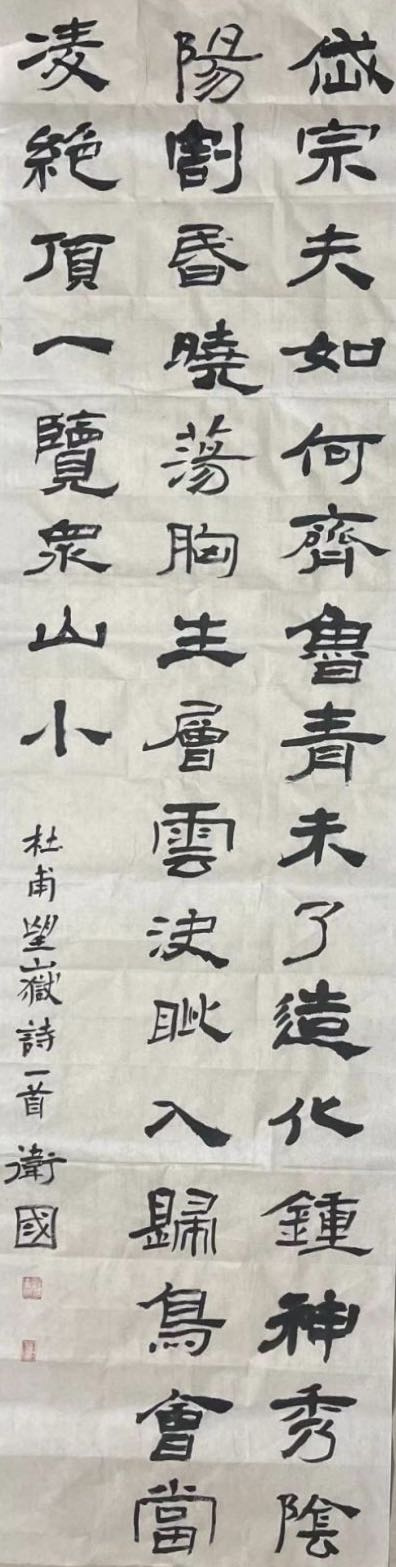 岱宗夫如何齊魯青未了造化鍾神秀陰
陽割昏曉蕩胸生層雲決眥入歸鳥會當
凌絕頂一覽眾山小
杜甫望嶽詩一首 衛國